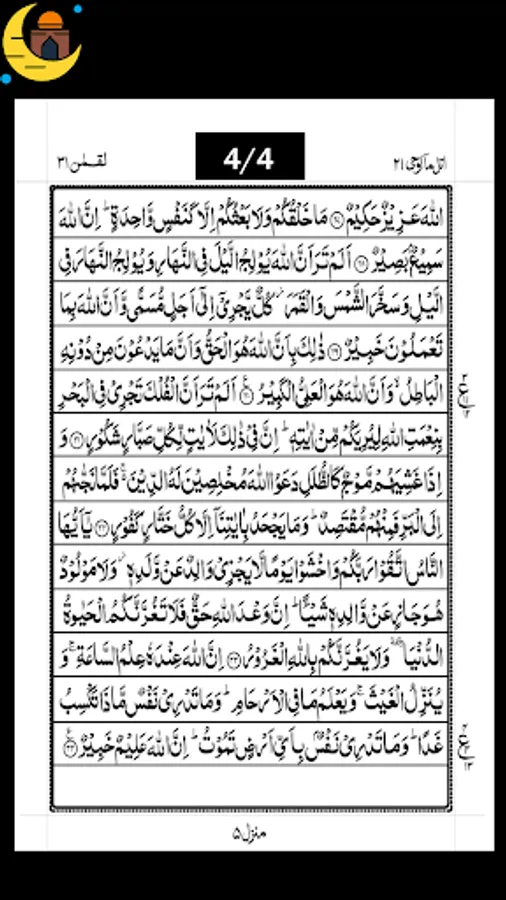 لقمٰن ٣١
4/4
اتل ماۤ اوحی ٢١
اللّٰهَ عَزِیْزٌ حَكِیْمٌ ﴿٢٧﴾ مَا خَلْقُكُمْ وَلَا بَعْثُكُمْ اِلَّا كَنَفْسٍ وَّاحِدَةٍ ؕ اِنَّ اللّٰهَ
سَمِیْعٌۢ بَصِیْرٌ ﴿٢٨﴾ اَلَمْ تَرَ اَنَّ اللّٰهَ یُوْلِجُ الَّیْلَ فِی النَّهَارِ وَیُوْلِجُ النَّهَارَ فِی
الَّیْلِ وَسَخَّرَ الشَّمْسَ وَالْقَمَرَ ؗ كُلٌّ یَّجْرِیْۤ اِلٰۤی اَجَلٍ مُّسَمًّی وَّاَنَّ اللّٰهَ بِمَا
تَعْمَلُوْنَ خَبِیْرٌ ﴿٢٩﴾ ذٰلِكَ بِاَنَّ اللّٰهَ هُوَ الْحَقُّ وَاَنَّ مَا یَدْعُوْنَ مِنْ دُوْنِهِ
الْبَاطِلُ ۙ وَاَنَّ اللّٰهَ هُوَ الْعَلِیُّ الْكَبِیْرُ ﴿٣٠﴾ اَلَمْ تَرَ اَنَّ الْفُلْكَ تَجْرِیْ فِی الْبَحْرِ
بِنِعْمَتِ اللّٰهِ لِیُرِیَكُمْ مِّنْ اٰیٰتِهٖ ؕ اِنَّ فِیْ ذٰلِكَ لَاٰیٰتٍ لِّكُلِّ صَبَّارٍ شَكُوْرٍ ﴿٣١﴾ وَ
اِذَا غَشِیَهُمْ مَّوْجٌ كَالظُّلَلِ دَعَوُا اللّٰهَ مُخْلِصِیْنَ لَهُ الدِّیْنَ ۚ فَلَمَّا نَجّٰىهُمْ
اِلَی الْبَرِّ فَمِنْهُمْ مُّقْتَصِدٌ ؕ وَمَا یَجْحَدُ بِاٰیٰتِنَاۤ اِلَّا كُلُّ خَتَّارٍ كَفُوْرٍ ﴿٣٢﴾ یٰۤاَیُّهَا
النَّاسُ اتَّقُوْا رَبَّكُمْ وَاخْشَوْا یَوْمًا لَّا یَجْزِیْ وَالِدٌ عَنْ وَّلَدِهٖ ؗ وَلَا مَوْلُوْدٌ
هُوَ جَازٍ عَنْ وَّالِدِهٖ شَیْـًٔا ؕ اِنَّ وَعْدَ اللّٰهِ حَقٌّ فَلَا تَغُرَّنَّكُمُ الْحَیٰوةُ
الدُّنْیَا ۥ وَلَا یَغُرَّنَّكُمْ بِاللّٰهِ الْغَرُوْرُ ﴿٣٣﴾ اِنَّ اللّٰهَ عِنْدَهٗ عِلْمُ السَّاعَةِ ۚ وَ
یُنَزِّلُ الْغَیْثَ ۚ وَیَعْلَمُ مَا فِی الْاَرْحَامِ ؕ وَمَا تَدْرِیْ نَفْسٌ مَّاذَا تَكْسِبُ
غَدًا ؕ وَمَا تَدْرِیْ نَفْسٌۢ بِاَیِّ اَرْضٍ تَمُوْتُ ؕ اِنَّ اللّٰهَ عَلِیْمٌ خَبِیْرٌ ﴿٣٤﴾
منزل ٥